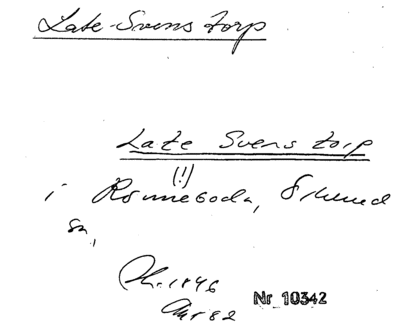 Late-Svens torp
Late Svens torp
(!)
i Rönneboda,
sn,
1846
82
Nr 10342